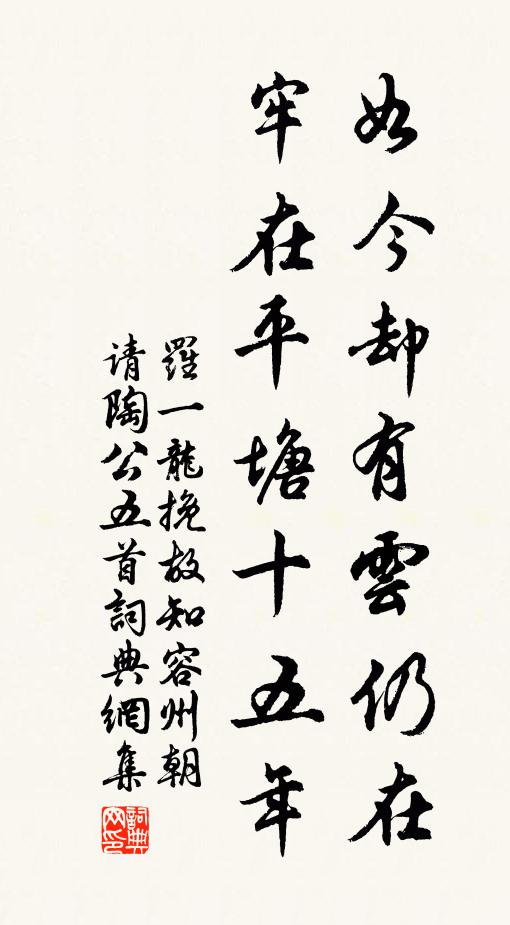 如今却有雲仍在
牢在平塘十五年
羅一龍挽故知容州朝
请陶公五首詞典網集
詞典网印